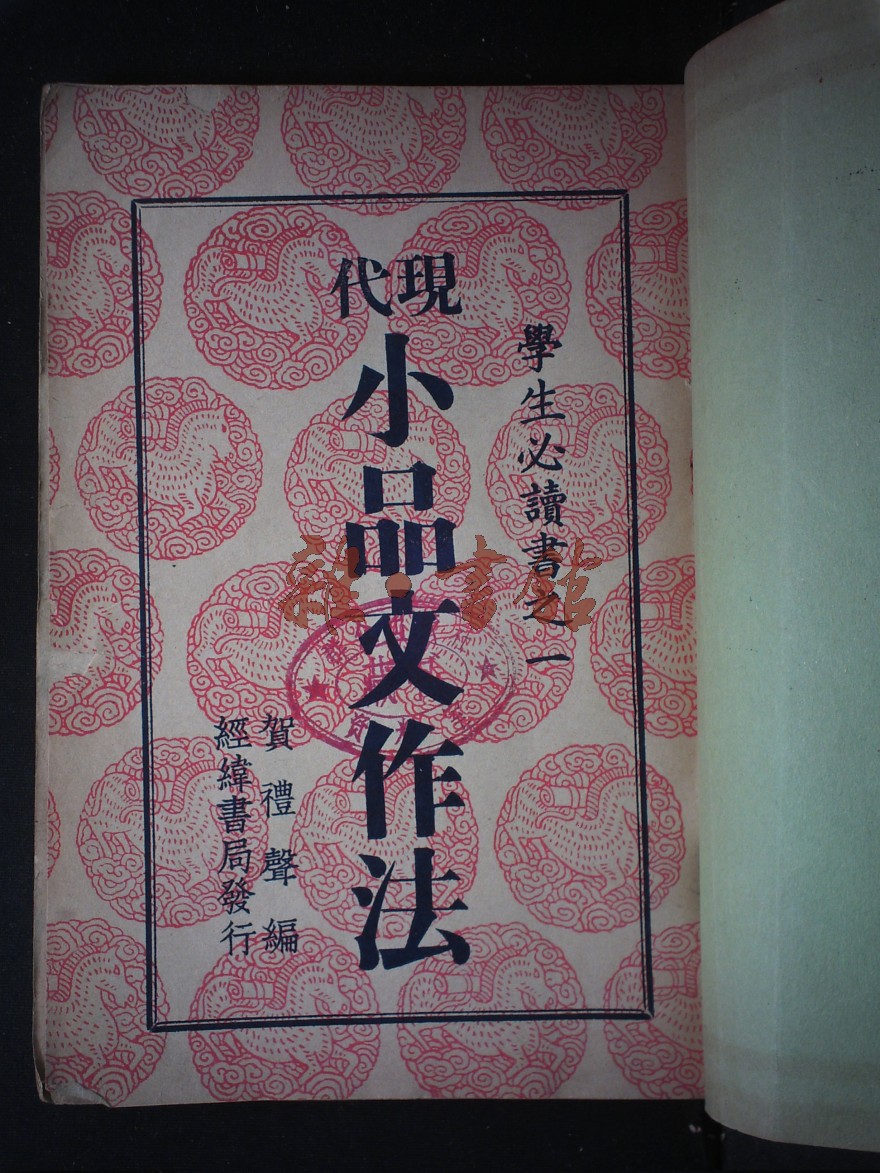 學生必讀書之一
現代
小品文作法
賀禮聲編
經緯書局發行
雜·書館